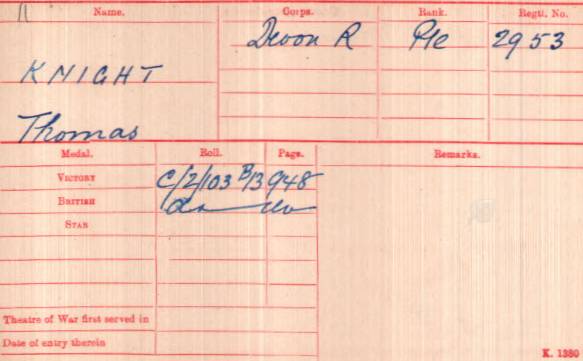 Name. Corps. Rank. Regtl. No.
Devon R Pte 2953
KNIGHT
Thomas
Medal. Roll. Page. Remarks.
VICTORY C/2/103 B13 948
BRITISH do do
STAR
Theatre of War first served in
Date of entry therein
K. 1380